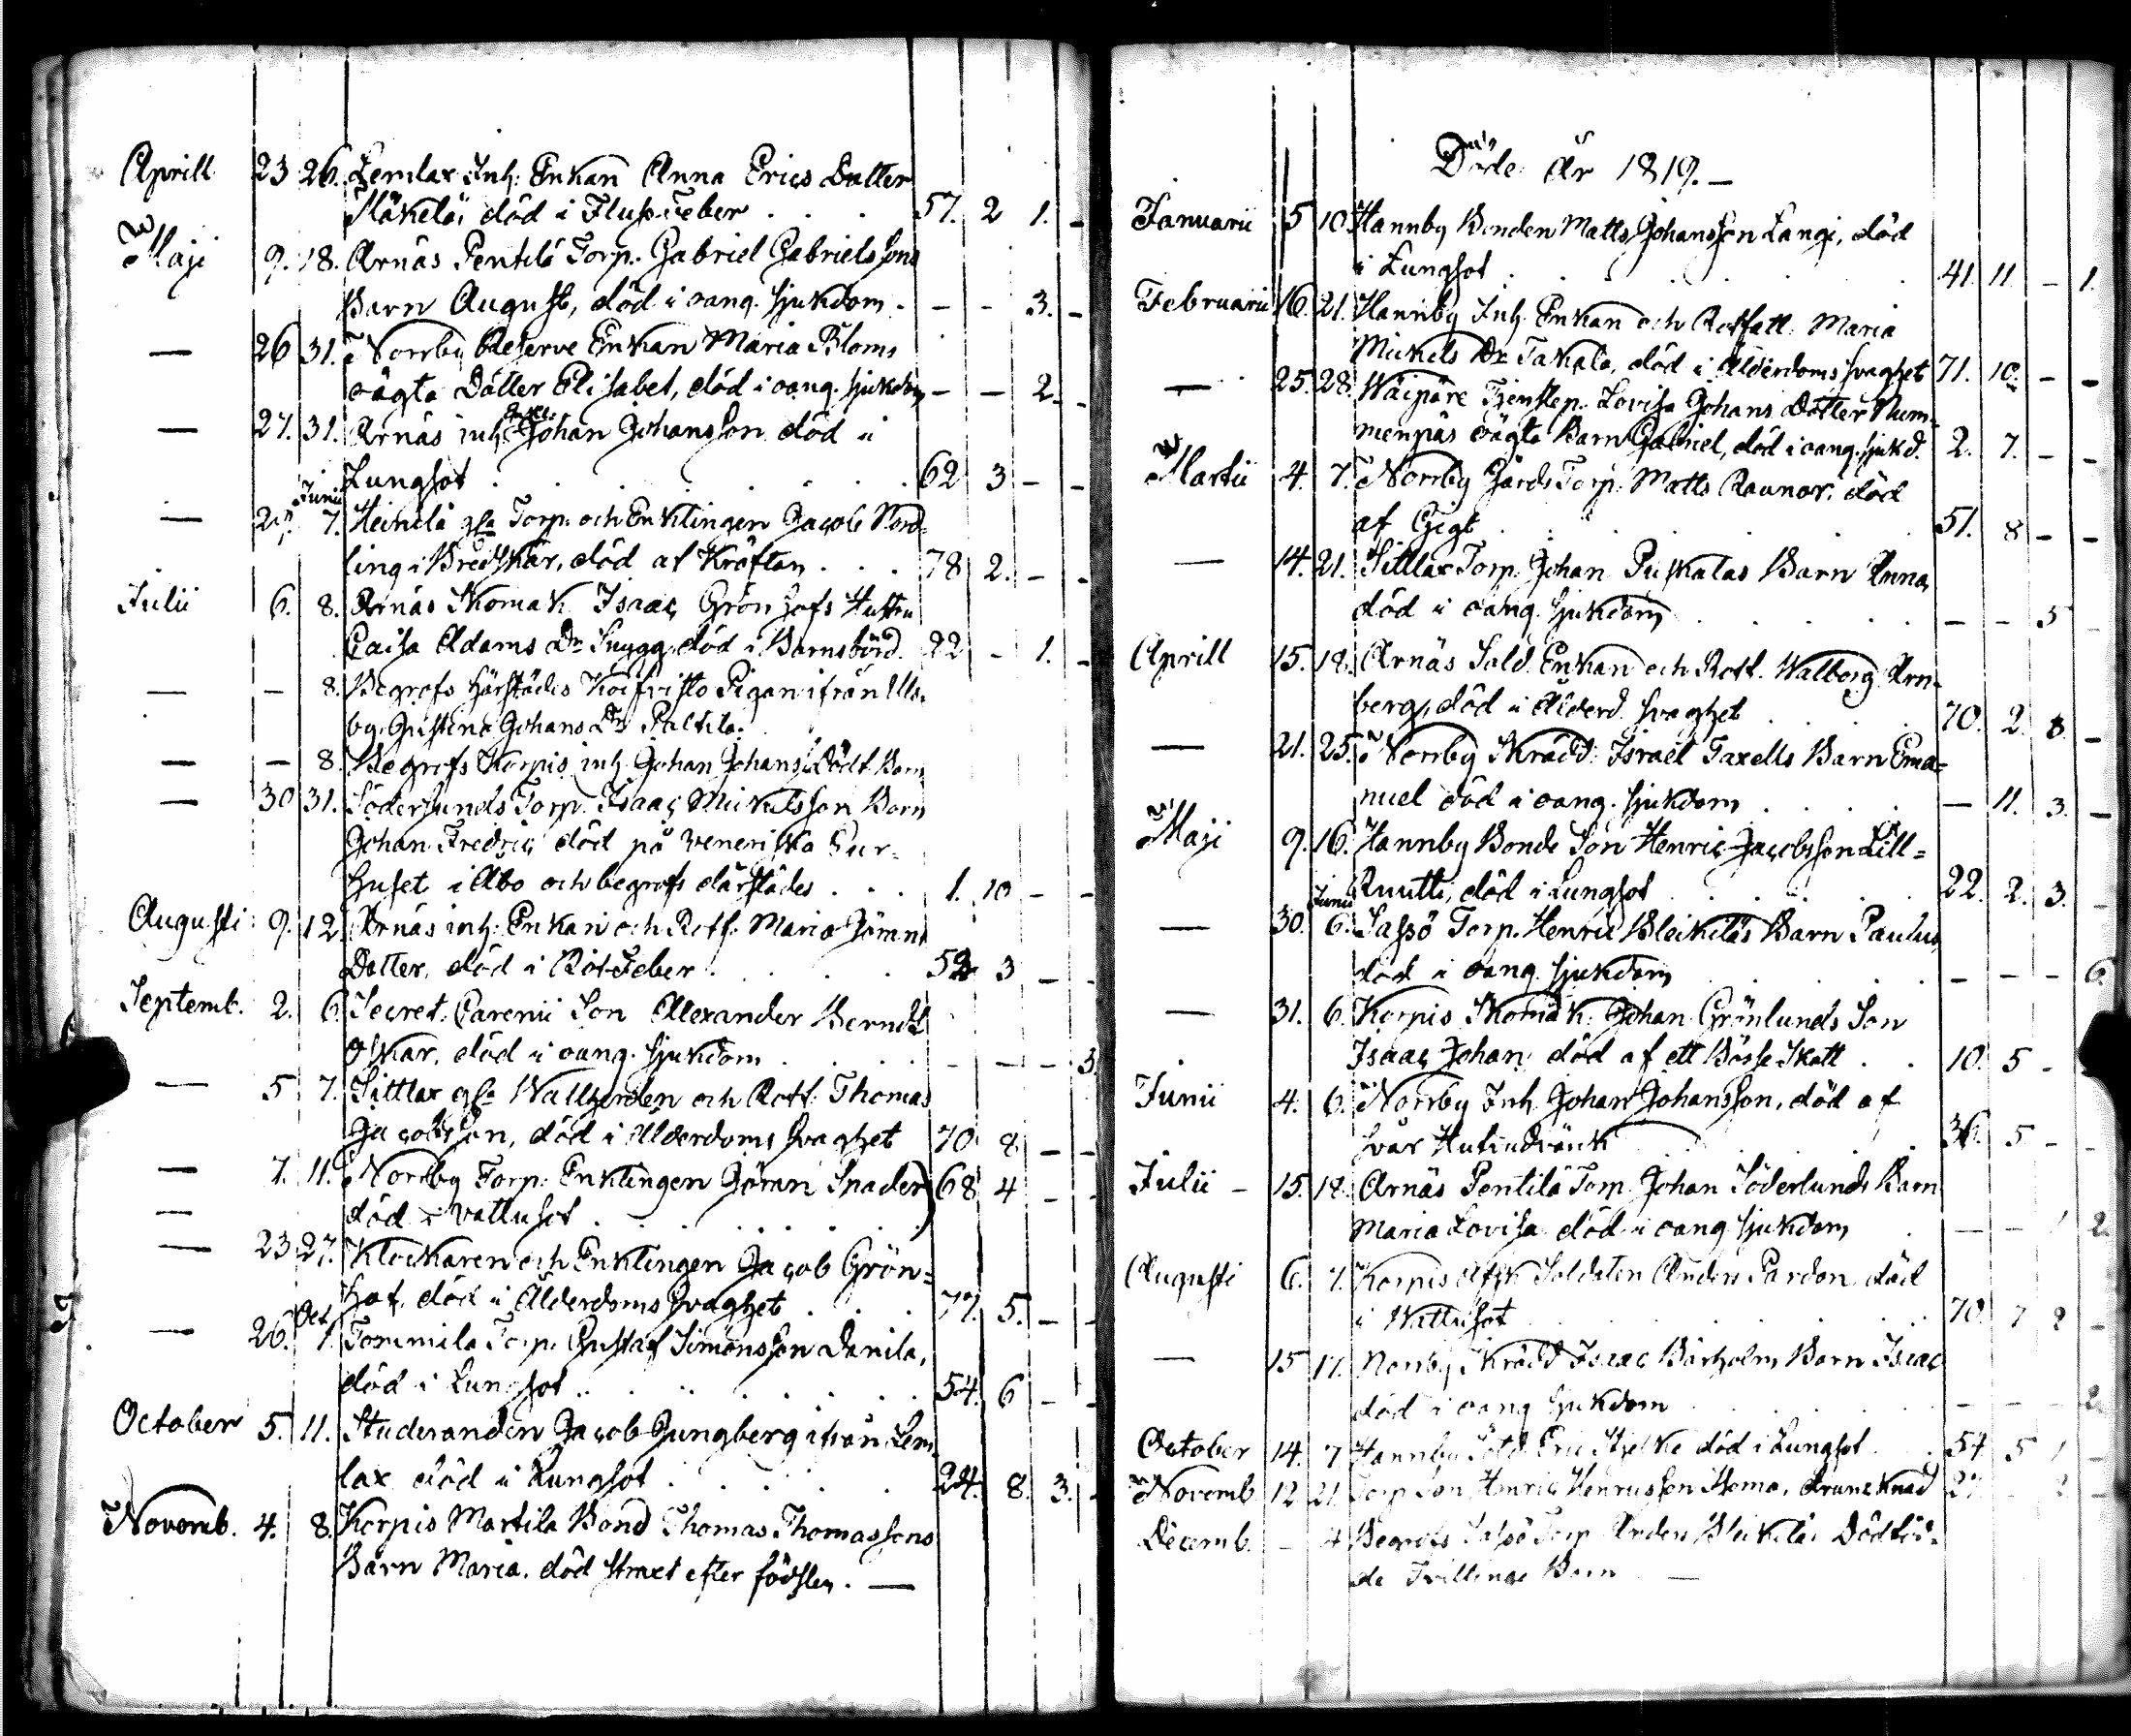 Aprill 23 26. Lemlax Inh: Enkan Anna Erics Dotter
Mäkelä, död i Fluss-Feber . . . 57. 2 1. -
Maji 9. 18. Arnäs Pentilä Torp. Gabriel Gabrielssons
Barn August, död i oang. sjukdom. - - 3. -
— 26 31. Norrby Reserve Enkan Maria Bloms
oägta Dotter Elisabet, död i oang. sjukdom - - 2. -
— 27. 31. Arnäs inh: Johan Johansson död i
Lungsot . . . . . 62 3 - -
— 27. Junii 7. Heindä Torp. och Enklingen Jacob Nord-
ling i Bredskär, död af Kräftan . . . 78 2. - -
Julii 6. 8. Arnäs Skomak. Isaac Grönhofs Hustru
Caisa Adams Dr Snygg, död i Barnsbörd. 22 - 1. -
— - 8. Begrofs härstädes Koifvisto Pigan ifrån Uls-
by, Christina Johans Dr Paltila.
— - 8. Begrofs Korpis inh. Johan Johans: Dödf: Barn
— 30 31. Södersunds Torp. Isaac Mickelsson Barn
Johan Fredric, död på veneriska Cur-
huset i Åbo och begrofs därstädes . . . 1. 10 - -
Augusti 9. 12. Arnäs inh: Enkan och Rotf. Maria Jörans
Dotter, död i Röt-Feber . . . 52 3 - -
Septemb. 2. 6. Secret. Carenii Son Alexander Berndt
Oskar, död i oang. sjukdom . . . - - - 3.
— 5 7. Sittlax Wallherden och Rotf. Thomas
Jacobsson, död i Ålderdoms svaghet 70 8 - -
— 7. 11. Norrby Torp. Enklingen Jöran Spader 68 4 - -
— död i Vattusot . . . . .
— 23 27. Klockaren och Enklingen Jacob Grön-
hof, död i Ålderdoms svaghet . . . 77. 5. - -
— 26. Oct. 1. Tommila Torp. Gustaf Simonsson Danila,
död i Lungsot . . . . . 54. 6 - -
October 5. 11. Studeranden Jacob Ljungberg ifrån Lem-
lax död i Lungsot . . . . . 24. 8. 3. -
Novemb. 4. 8. Korpis Martila Bond Thomas Thomassons
Barn Maria. död straxt efter födslen. —
Döde År 1819. —
Januarii 5 10. Hannby Bonden Matts Johansson Langi, död
i Lungsot . . . . . 41. 11 - 1.
Februarii 16. 21. Hannby Inh. Enkan och Rotfatt. Maria
Mickels Dr Takala, död i Ålderdoms svaghet 71. 10. - -
— 25. 28. Wäipäre Tjenstep. Lovisa Johans Dotter Num-
menpäs oägta Barn Gabriel, död i oang. sjukd. 2. 7. - -
Martii 4. 7. Norrby Gårds Torp. Matts Raunar, död
af Gigt . . . . . 51. 8 - -
— 14. 21. Sittlax Torp. Johan Puskalas Barn Anna,
död i oang. sjukdom . . . - - 5 -
Aprill 15. 18. Arnäs Sold. Enkan och Rotf. Walborg Arn-
berg, död i Ålderd. svaghet . . . 70. 2. 8. -
— 21. 25. Norrby Skrädd: Israel Taxells Barn Ema-
nuel död i oang. sjukdom . . . — 11. 3. -
Maji 9. 16. Hannby Bonde Son Henric Jacobsson Lill-
Knutti, död i Lungsot . . . 22. 2. 3. -
— 30. Junii 6. Sassö Torp. Henric Bleikiläs Barn Paulus
död i oang. sjukdom . . . - - - 6.
— 31. 6. Korpis Skomak. Johan Grönlunds Son
Isaac Johan, död af ett Bösse Skott . . 10. 5 - -
Junii 4. 6. Norrby Inh. Johan Johansson, död af
svår 36. 5 - -
Julii - 15. 18. Arnäs Pentilä Torp. Johan Söderlunds Barn
Maria Lovisa död i oang. sjukdom . - - 1 2.
Augusti 6. 7. Korpis Afsk. Soldaten Anders Pardon, död
i Wattusot . . . . . 70 7 2 -
— 15 17. Norrby Skrädd Isaac Bärholm Barn Isaac
död i oang. sjukdom . . . - - - 2.
October 14. 7 Hannby Eric död i Lungsot . . 57 5 1 -
Novemb 12 21 Torp Son Henric Henricsson drunknad 27 - 2 -
Decemb. - 4 Begrofs Sassö Torp Anders Bleikilä, Dödföd-
de Tvillinge Barn —